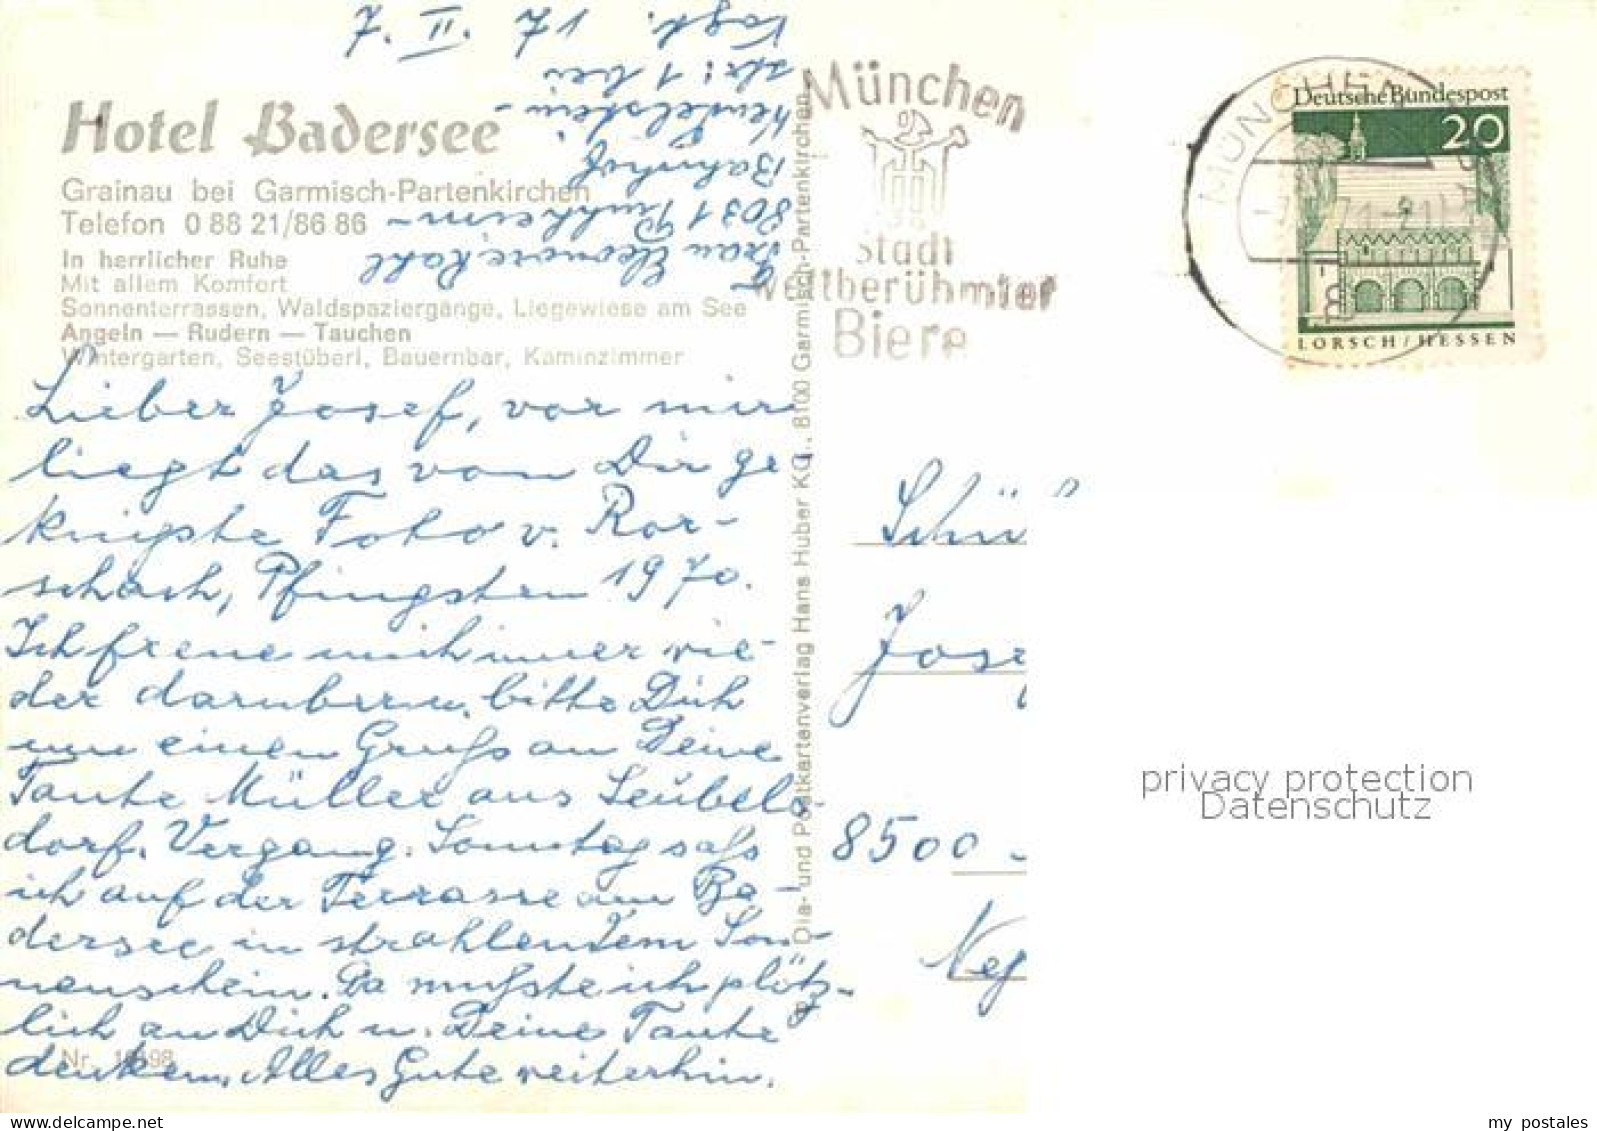 Hotel Badersee
Grainau bei Garmisch-Partenkirchen
Telefon 0 88 21/86 86
In herrlicher Ruhe
Mit allem Komfort
Sonnenterrassen, Waldspaziergänge, Liegewiese am See
Angeln — Rudern — Tauchen
Wintergarten, Seestüberl, Bauernbar, Kaminzimmer
Frau Eleonore Rahl
8031 Puchheim-
Bahnhof
Wendelstein-
str. 1 bei
Vogt. 17. II. 7
Lieber Josef, vor mir
liegt das von Dir ge
knipste Foto v. Ror-
schach, Pfingsten 1970.
Ich freue mich immer wie-
der darüber u. bitte Dich
um einen Gruß an Deine
Tante Müller aus Leubels-
dorf. Vergang. Sonntag saß
ich auf der Terrasse am Ba-
dersee in strahlendem Son-
nenschein. Da mußte ich plötz-
lich an Dich u. Deine Tante
denken. Alles Gute weiterhin.
Nr.
Dia- und Postkartenverlag Hans Huber KG., 8100 Garmisch-Partenkirchen
München
Stadt
weltberühmter
Biere
MÜNCHEN
Deutsche Bundespost
20
LORSCH/HESSEN
Schü
Jose
8500 -
privacy protection
Datenschutz
my postales